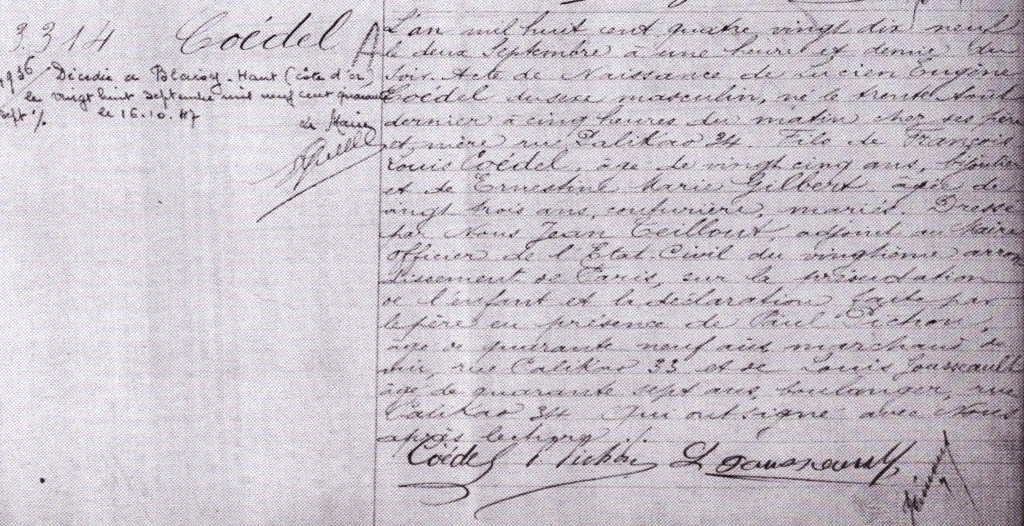 3.314 Coédel
1936
Décédée a Blaisy-Haut (côte d'or)
le vingt huit septembre mil neuf cent quarante
sept ./.
le 16.10.47
le Maire
L'an mil huit cent quatre vingt dix neuf
le deux Septembre à une heure et demie du
soir. Acte de Naissance de Lucien Eugène
Coédel du sexe masculin, né le trente Août
dernier à cinq heures du matin chez ses père
et mère rue Palikao 34. Fils de François
Louis Coédel, âgé de vingt cinq ans, bijoutier
et de Ernestine Marie Gilbert âgée de
vingt trois ans, couturière, mariés. Dressé
par Nous Jean Teillout, adjoint au Maire
officier de l'Etat Civil du vingtième arron
dissement de Paris, sur la présentation
de l'enfant et la déclaration faite par
le père en présence de Paul Pichon,
âgé de quarante neuf ans marchand de
vin, rue Palikao 33 et de Louis Gousseault
âgé de quarante sept ans, boulanger, rue
Palikao 34 Qui ont signé avec Nous
après lecture ./.
Coédel P Pichon L Gousseault